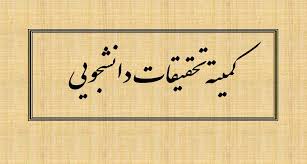 کمیته تحقیقات دانشجویی